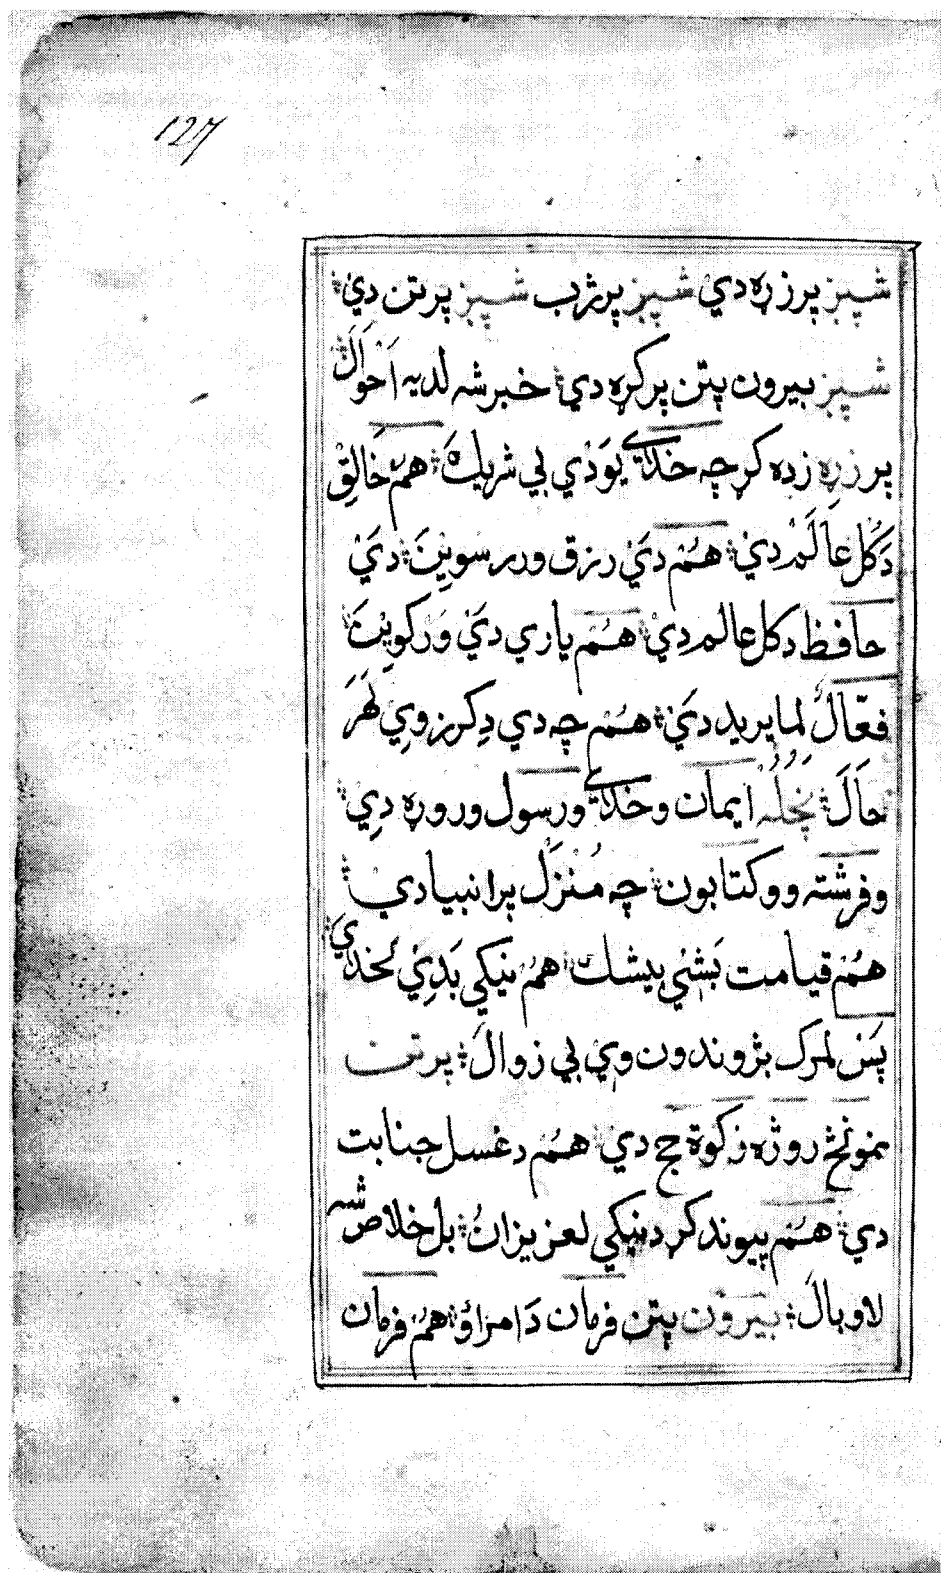 127
شپږ پر زړه دي شپږ پر ژب شپږ پر تن دي
شپږ بيرون پتن پر کړه دي خبر شه لديه احوال
پر زړه زده کړ چه خداى يو دي بي شريك هم خالق
د کل عالم دي هم دي رزق وررسوين دي
حافظ د کل عالم دي هم ياري دي ورکوين
فعّال لما يريد دي هم چه دي د کرز وي لهر
حال ايمان و خداى و رسول و روړه دي
و فرشته و و کتابون چه منزل پر انبيا دي
هم قيامت بيشك هم نيکي بدي لخداي
پس لمرک بژوندون وي بي زوال پر تن
نمونځ روژه زکوة حج دي هم د غسل جنابت
دي هم پيوند کړ د نيکي لعزيزان بل خلاص شه
لاوبال بيرون پتن فرمان د امراؤ هم فرمان